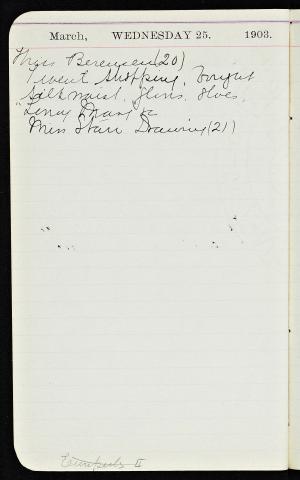 March, WEDNESDAY 25. 1903.
Miss Berensen (20)
I went shopping, bought
silk waist, gloves, shoes,
Miss Starr Drawing (21)
II